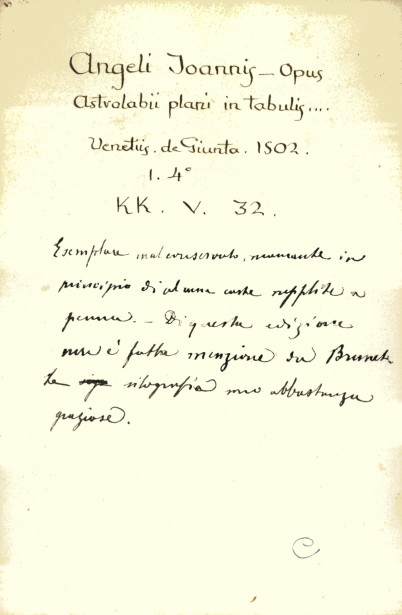 Angeli Joannis — Opus
Astrolabii plani in tabulis....
Venetiis. de Giunta. 1502.
1. 4°
KK. V. 32.
Esemplare mal conservato, mancante in
principio di alcune carte supplite a
penna. — Di questa edizione
non è fatta menzione da Brunet.
Le silografie sono abbastanza
graziose.
C